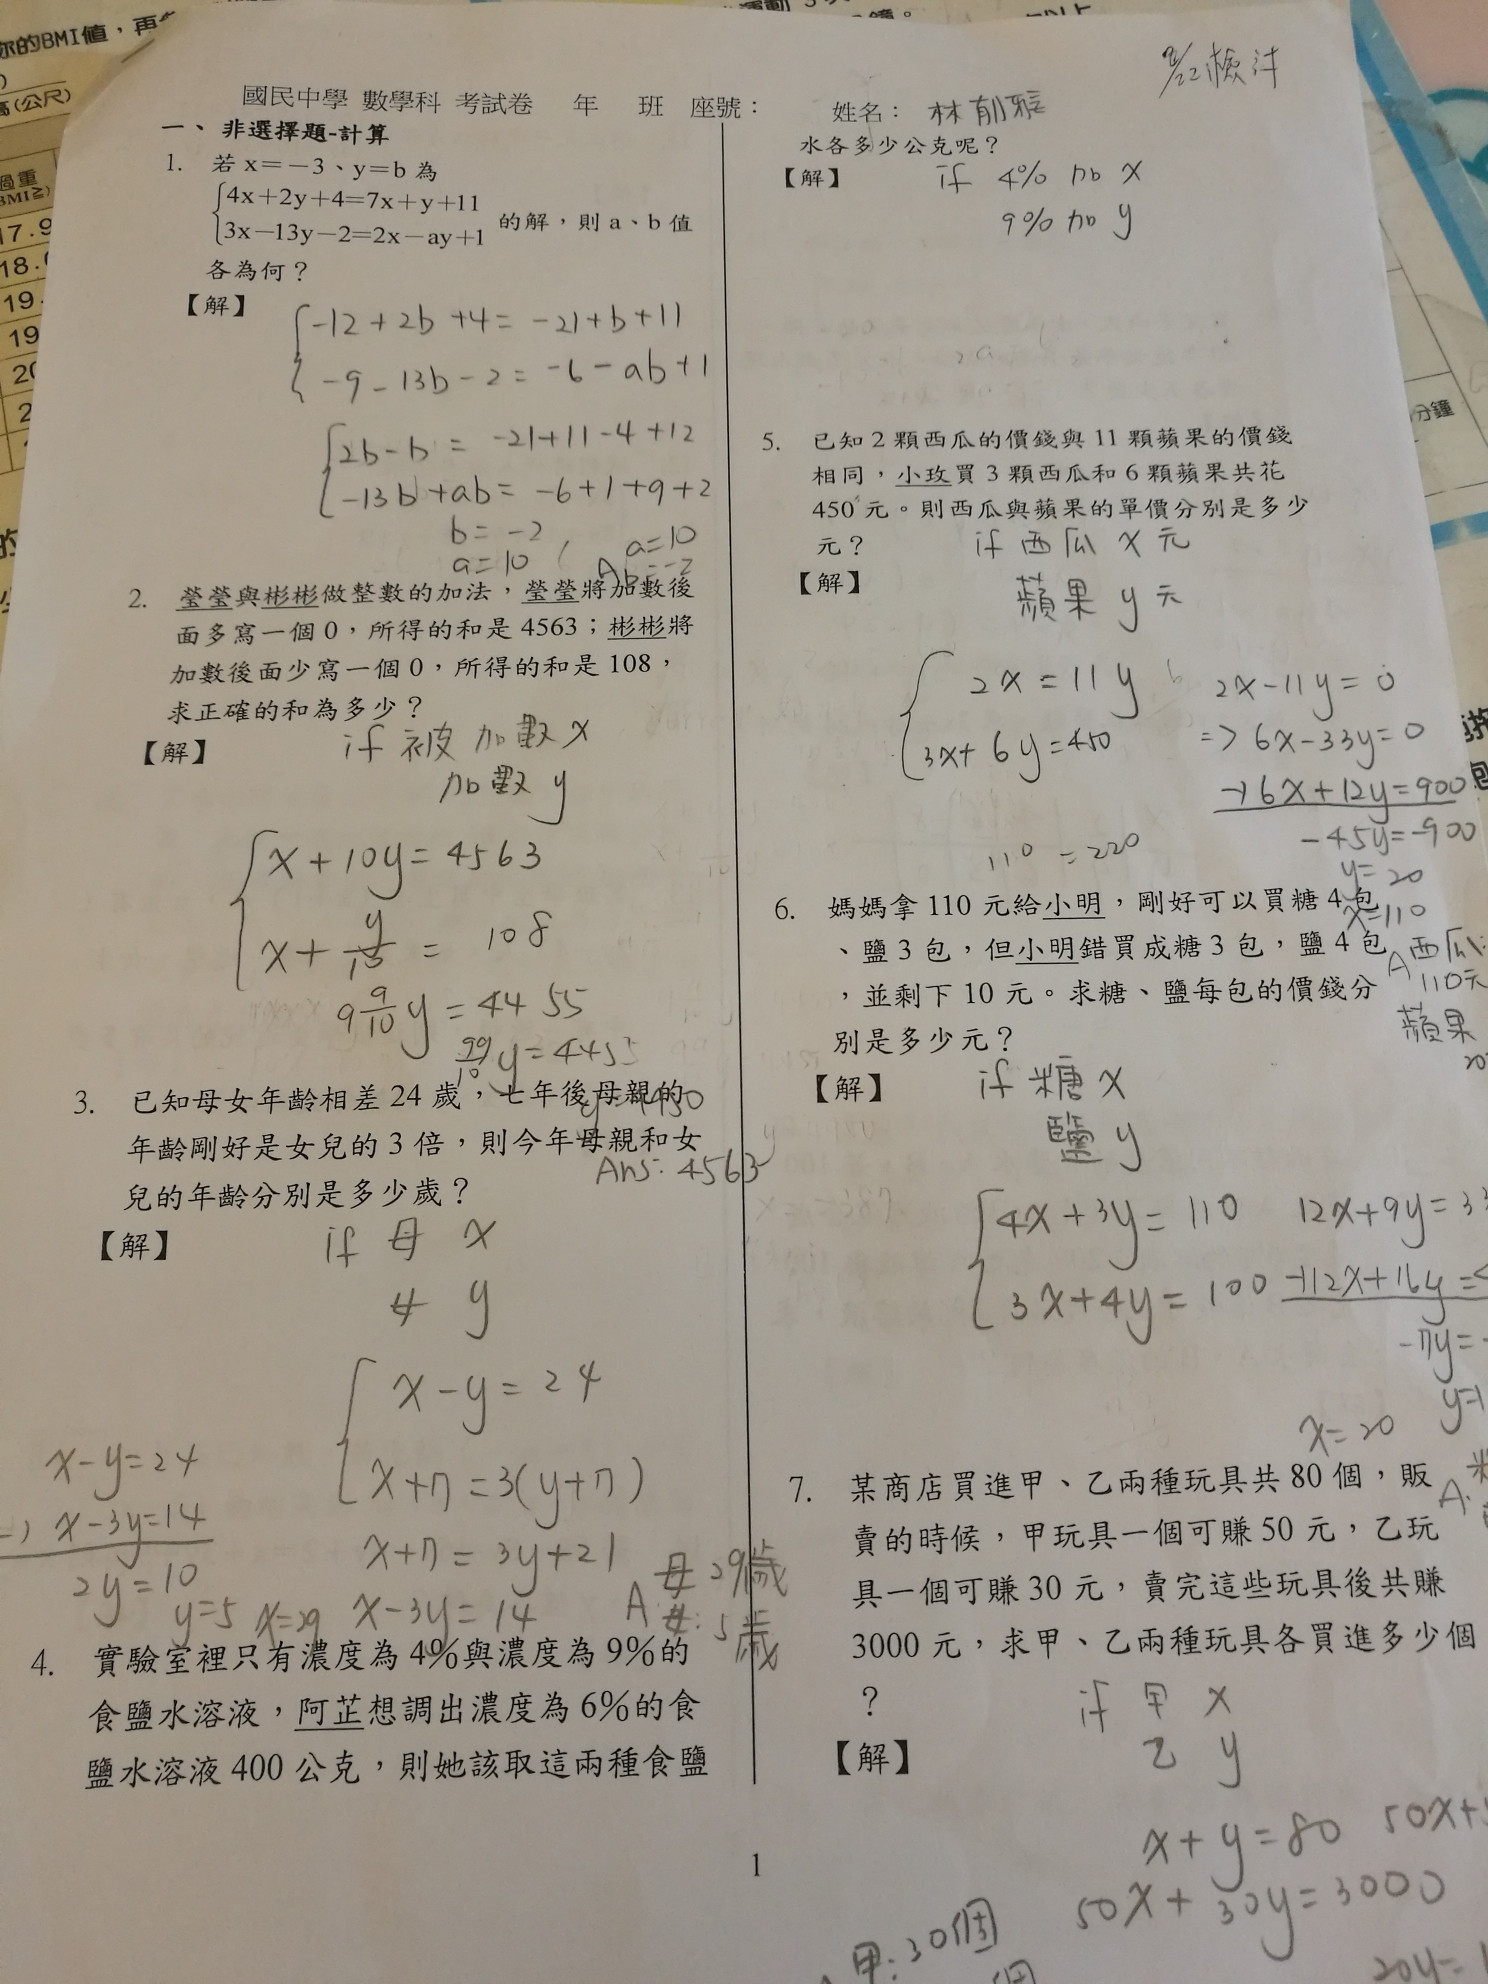 你的BMI值，再
高(公尺)
過重
BMI≧)
17.9
18.
19.
19
20
2
國民中學 數學科 考試卷 年 班 座號：
姓名：
一、非選擇題-計算
1. 若 x＝－3、y＝b 為
4x＋2y＋4=7x＋y＋11
3x－13y－2=2x－ay＋1
的解，則 a、b 值
各為何？
【解】
-12 + 2b + 4 = -21 + b + 11
-9 - 13b - 2 = -6 - ab + 1
2b - b = -21 + 11 - 4 + 12
-13b + ab = -6 + 1 + 9 + 2
b = -2
a = 10
a = 10
A b = -2
2. 瑩瑩與彬彬做整數的加法，瑩瑩將加數後
面多寫一個 0，所得的和是 4563；彬彬將
加數後面少寫一個 0，所得的和是 108，
求正確的和為多少？
【解】
if 被加數 x
加數 y
x + 10y = 4563
x + y/10 = 108
9 9/10 y = 4455
99/10 y = 4455
3. 已知母女年齡相差 24 歲，七年後母親的
年齡剛好是女兒的 3 倍，則今年母親和女
Ans: 4563
兒的年齡分別是多少歲？
【解】
if 母 x
女 y
x - y = 24
x + 7 = 3(y + 7)
x + 7 = 3y + 21
x - 3y = 14
x - y = 24
-) x - 3y = 14
2y = 10
y = 5 x = 29
A 母 29歲
女: 5歲
4. 實驗室裡只有濃度為 4%與濃度為 9%的
食鹽水溶液，阿芷想調出濃度為 6%的食
鹽水溶液 400 公克，則她該取這兩種食鹽
水各多少公克呢？
【解】
if 4% 加 x
9% 加 y
5. 已知 2 顆西瓜的價錢與 11 顆蘋果的價錢
相同，小玫買 3 顆西瓜和 6 顆蘋果共花
450 元。則西瓜與蘋果的單價分別是多少
元？
【解】
if 西瓜 x 元
蘋果 y 元
2x = 11y
3x + 6y = 450
2x - 11y = 0
=> 6x - 33y = 0
-) 6x + 12y = 900
-45y = -900
y = 20
x = 110
110 = 220
A 西瓜:
110元
蘋果
20
6. 媽媽拿 110 元給小明，剛好可以買糖 4 包
、鹽 3 包，但小明錯買成糖 3 包，鹽 4 包
，並剩下 10 元。求糖、鹽每包的價錢分
別是多少元？
【解】
if 糖 x
鹽 y
4x + 3y = 110
3x + 4y = 100
12x + 9y = 33
-) 12x + 16y =
-7y = -
y = 1
x = 20
A.
7. 某商店買進甲、乙兩種玩具共 80 個，販
賣的時候，甲玩具一個可賺 50 元，乙玩
具一個可賺 30 元，賣完這些玩具後共賺
3000 元，求甲、乙兩種玩具各買進多少個
？
【解】
if 甲 x
乙 y
x + y = 80
50x +
50x + 30y = 3000
20y =
甲: 30個
個
1
分鐘